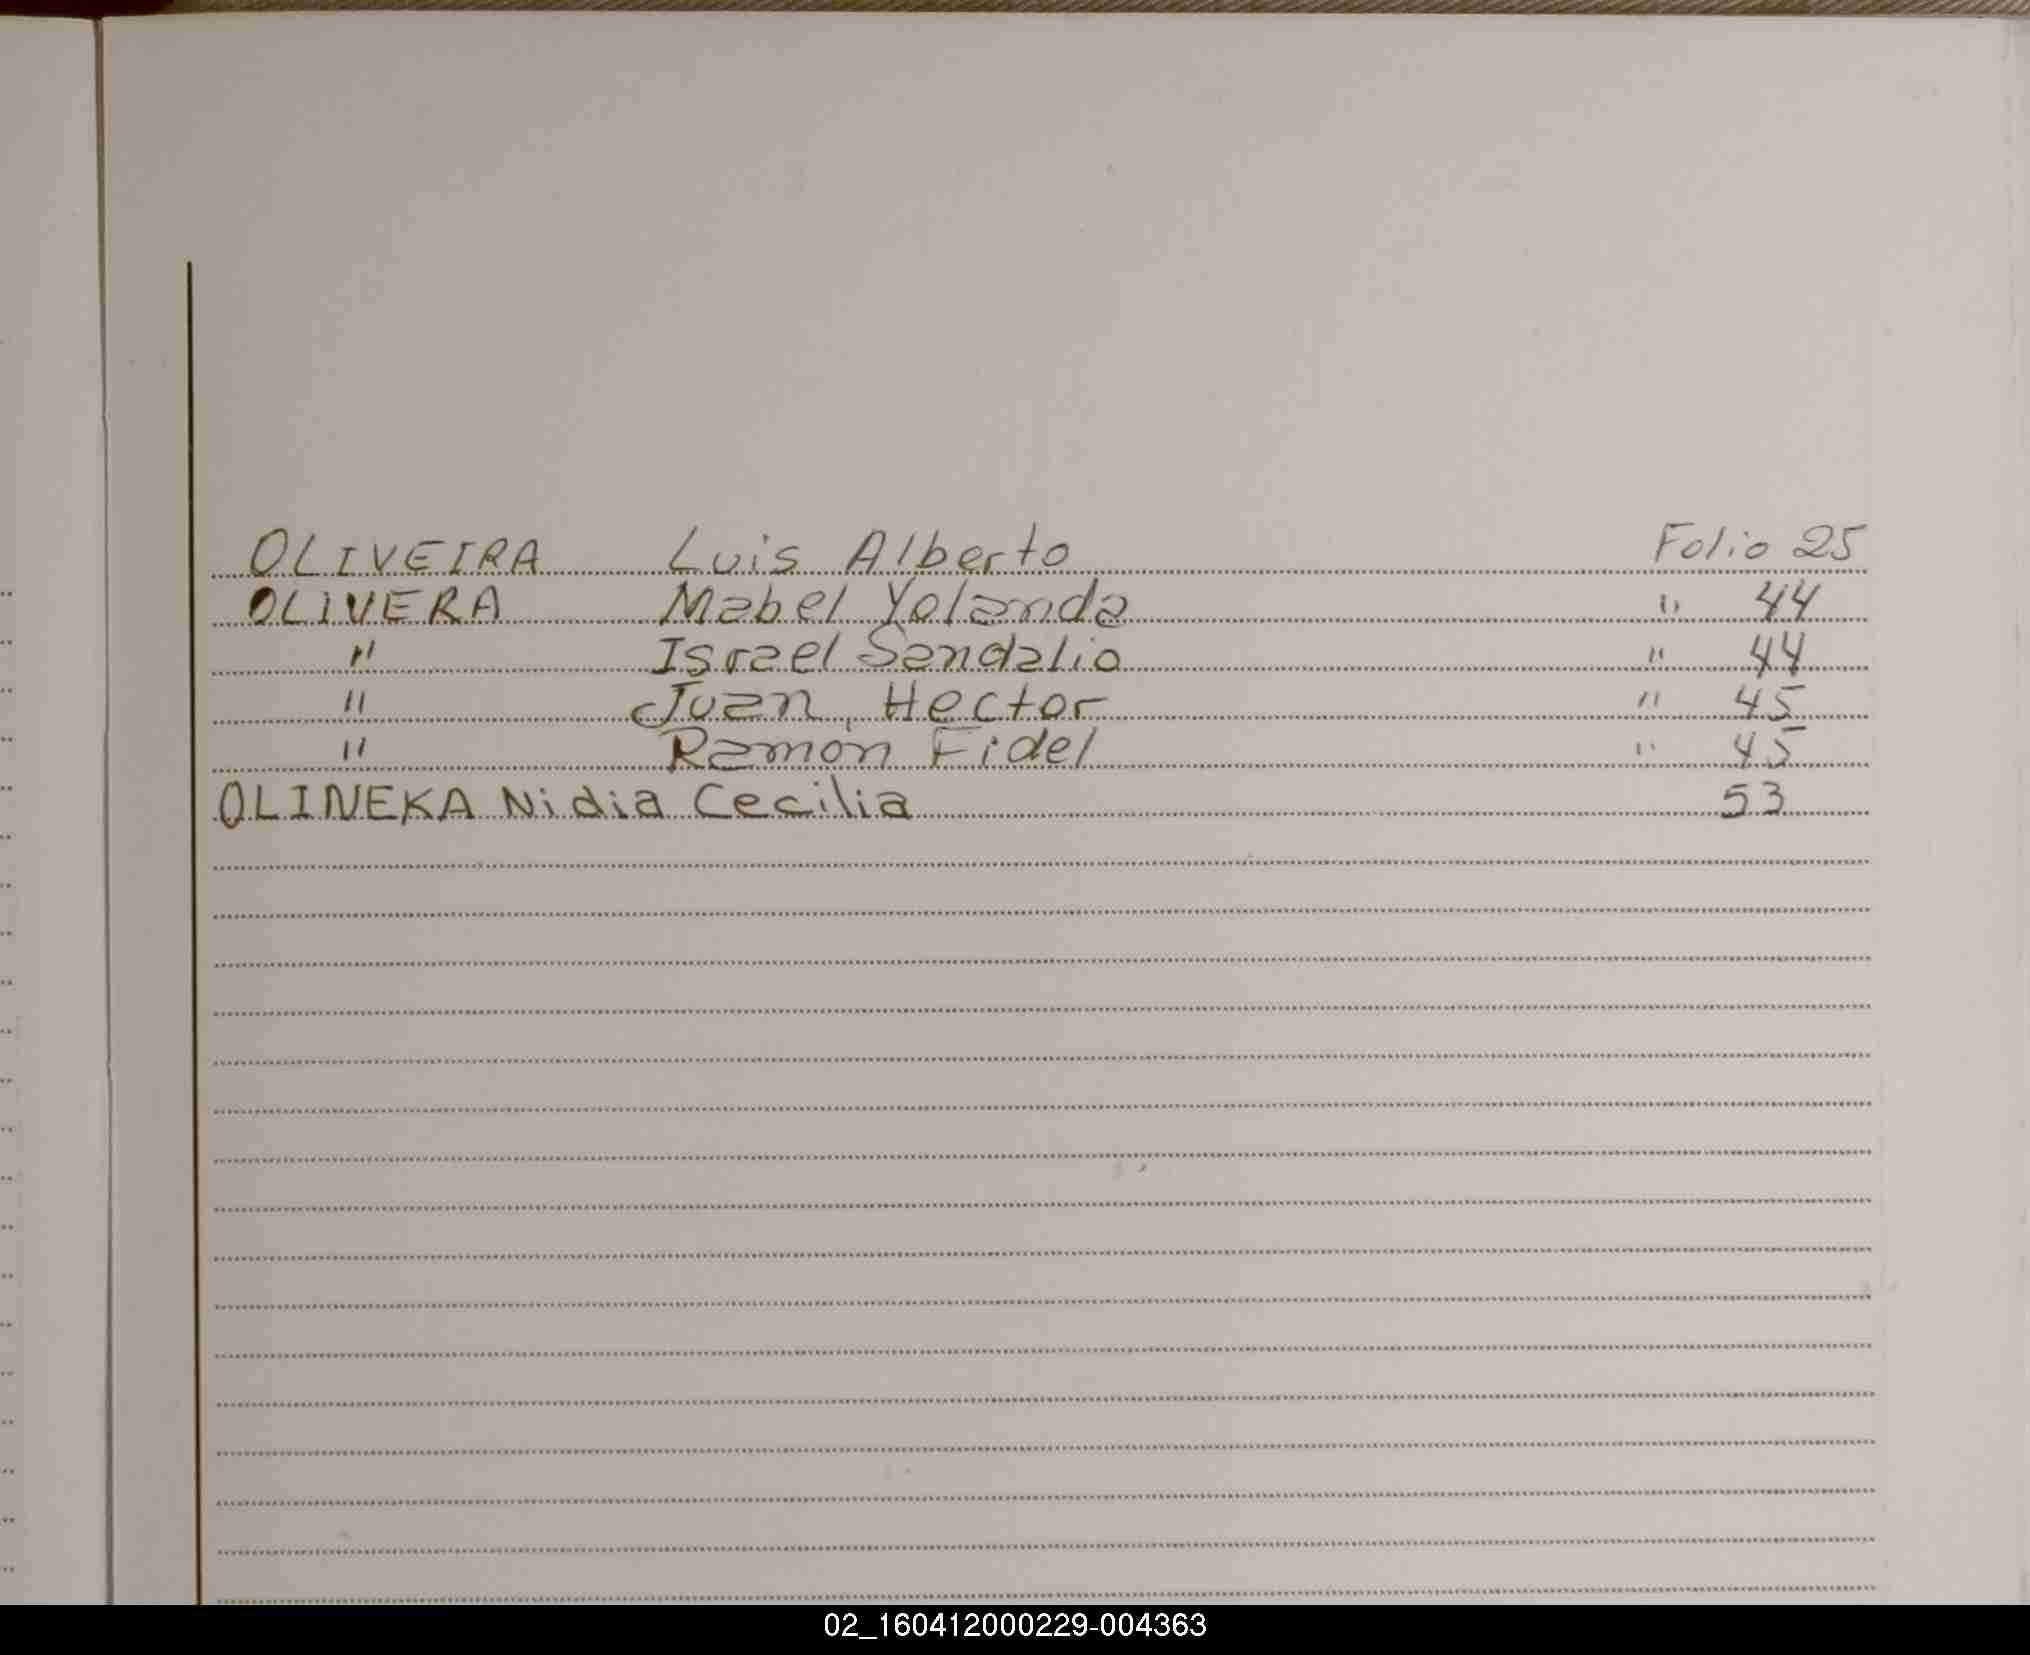 OLIVEIRA Luis Alberto Folio 25
OLIVERA Mabel Yolanda " 44
" Israel Sandalio " 44
" Juan, Hector " 45
" Ramón Fidel " 45
OLINEKA Nidia Cecilia 53
02_160412000229-004363